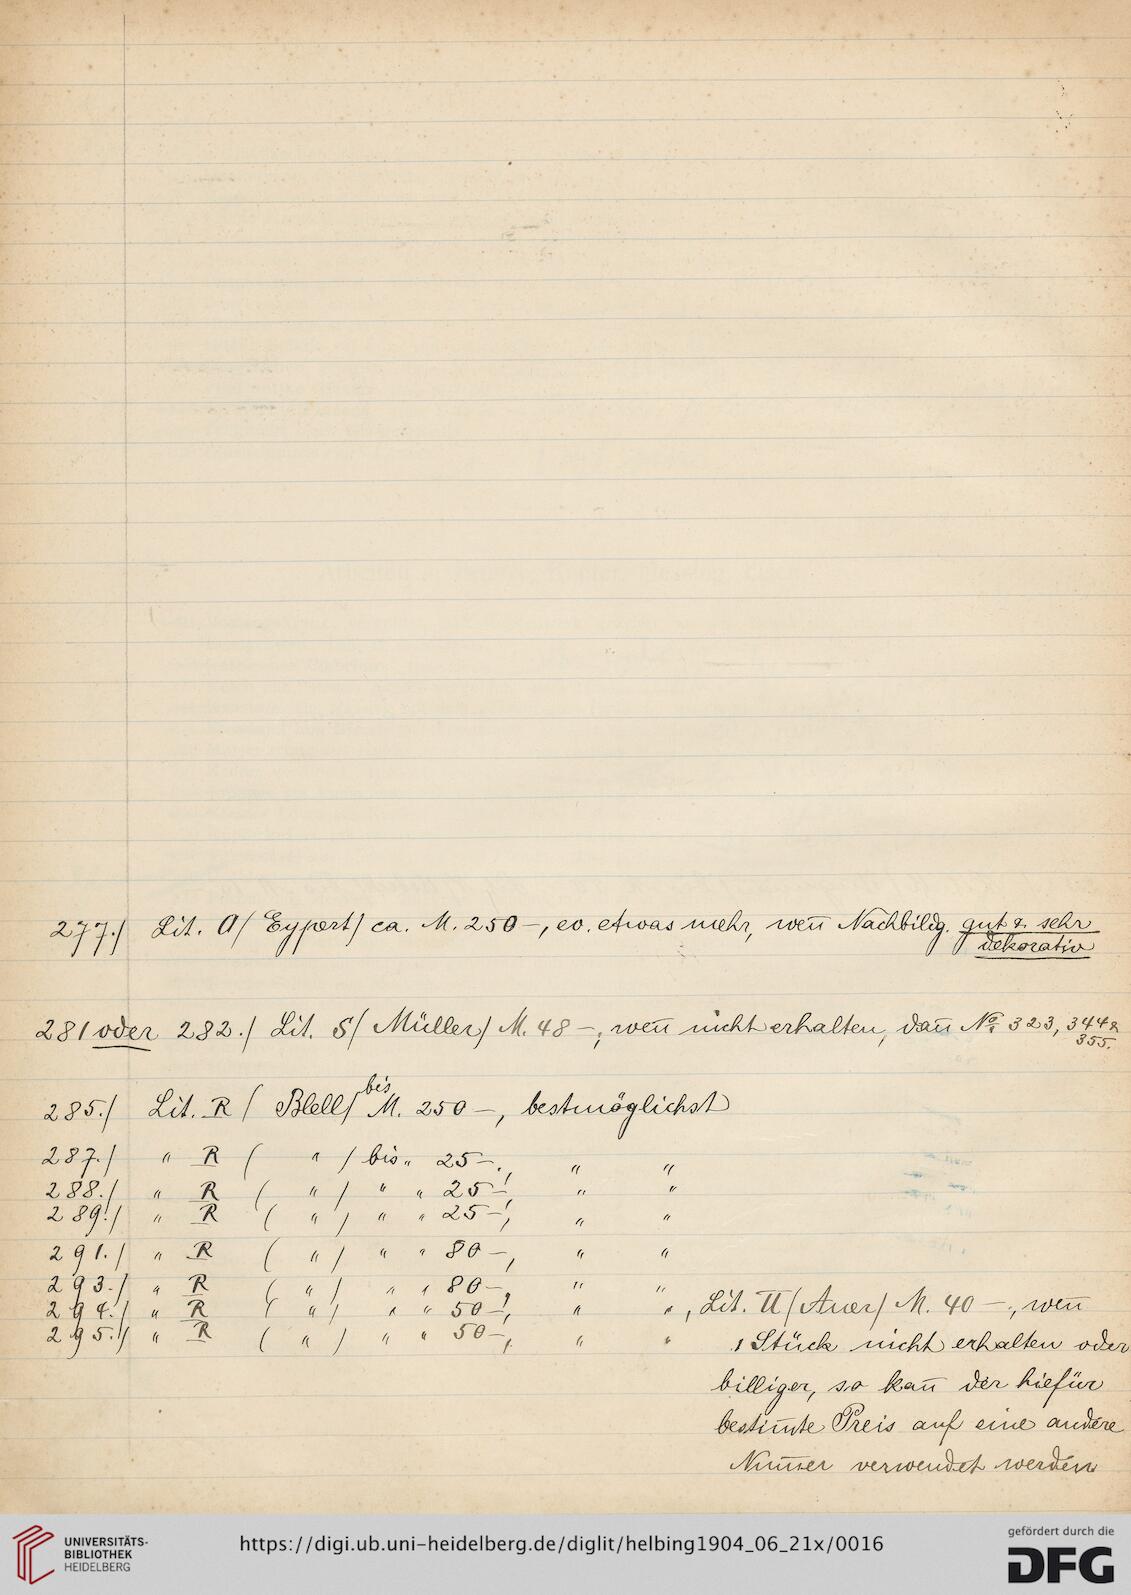 277./ Lit. A / Eypert / ca. M. 250 –, ev. etwas mehr, weñ Nachbildg. gut & sehr
dekorativ
281 oder 282./ Lit. S / Müller / M. 48 –, weñ nicht erhalten, dañ No. 323, 344 &
355.
285./ Lit. R / Blell / bis M. 250 –, bestmöglichst
287./ " R ( " / bis " 25 –, " "
288./ " R ( " / " " 25 –, " "
289./ " R ( " / " " 25 –, " "
291./ " R ( " / " " 80 –, " "
293./ " R ( " / " " 80 –, " "
294./ " R ( " / " " 50 –, " ", Lit. U / Auer / M. 40 –, weñ
295./ " R ( " / " " 50 –, " " 1 Stück nicht erhalten oder
billiger, so kañ der hiefür
bestim̄te Preis auf eine andere
Num̄er verwendet werden
UNIVERSITÄTS-
BIBLIOTHEK
HEIDELBERG
https://digi.ub.uni-heidelberg.de/diglit/helbing1904_06_21x/0016
gefördert durch die
DFG